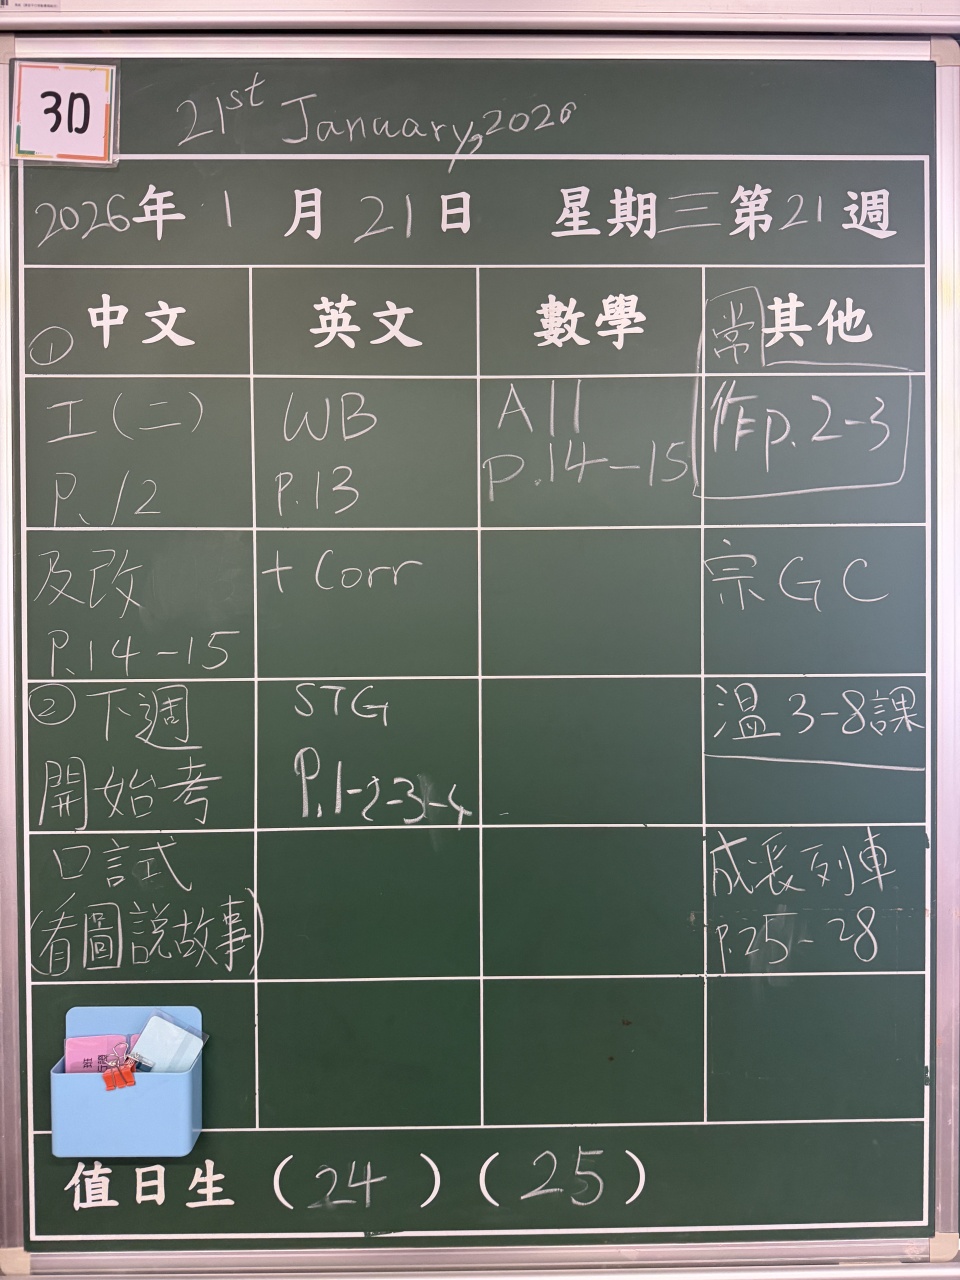 3D
21st January, 2026
2026年1月21日 星期三第21週
① 中文 英文 數學 常 其他
工(二) WB A11 作p.2-3
P.12 P.13 p.14-15
及改 + Corr 宗GC
P.14-15
② 下週 STG 溫3-8課
開始考 P.1-2-3-4
口試 成長列車
(看圖說故事) P.25-28
值日生 (24)(25)